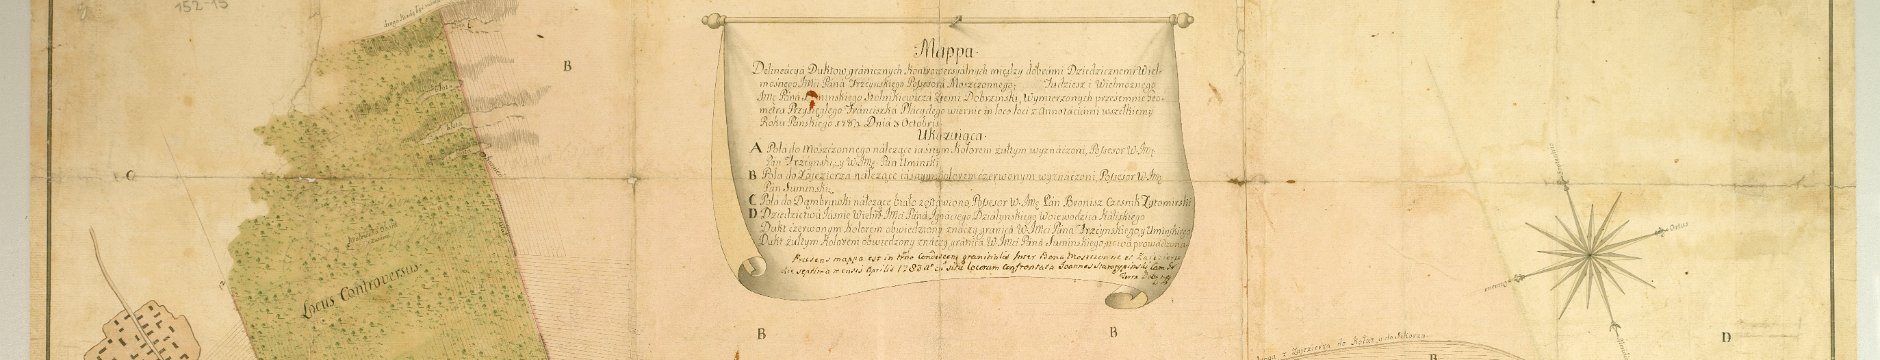 152-15
B
C
Locus Controversus
Mappa.
Delineacya Duktow granicznych Kontrowersyalnych między dobrami Dziedzicznemi Wiel-
możnego JMci Pana Trzcynskiego Poſseſora Moszczonnego, Tadziesz i Wielmożnego
JMę Pana Suminskiego Stolnikiewicza Ziemi Dobrzinski, Wymierzonych przezemnie Geo-
metrę Przysięgłego Franciszka Placydego wiernie in loco loci z annotaciami wszelkiemy
Roku Panskiego 1782 Dnia 8 Octobris.
Ukazuiąca.
A Pola do Moszczonnego należące iasnym Kolorem zułtym wyznaczoni, Poſseſor W JMę
Pan Trzcynski, y W JMę Pan Uminski
B Pola do Zaiezierza należące iasnym kolorem czerwonym wyznaczoni, Poſseſor W JMę
Pan Suminski
C Pola do Dąmbrowki należące biało zostawiono Poſseſor W JMę Pan Bronisz Czesnik Zytomirski
D Dziedzictwa Jasnie Wielm JMci Pana Ignaciego Działynskiego Woiewodzica Kaliskiego
Dukt czerwonym Kolorem obwiedziony znaczy granicą W JMci Pana Trzcynskiego y Uminskiego
Dukt zułtym Kolorem obwiedzony znaczy granica W JMci Pana Suminskiego prowadzona
Praesens mappa est in granitialis Inter Bona Moszczonne et Zaiezierze
die septima mensis Aprilis 1783 in situ Locorum Confrontata Joannes
B
B
Droga z Zaiezierza do Kołat a do Sikorza
B
Ortus
D